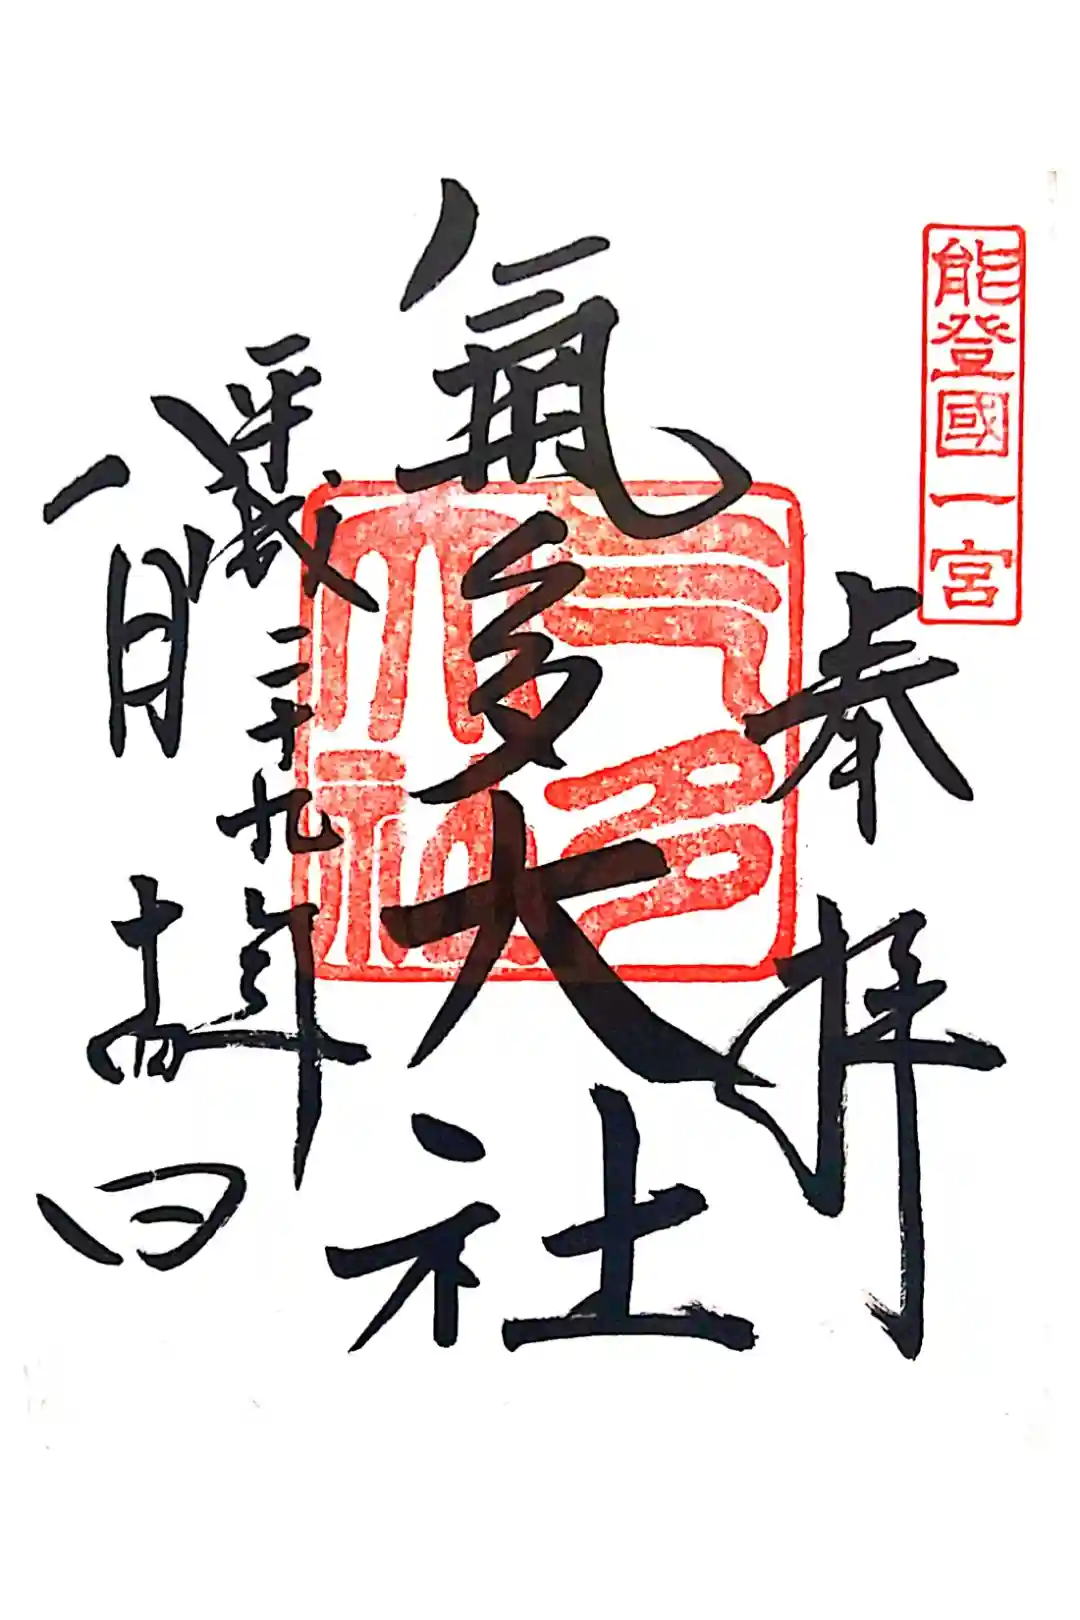 能登國一宮
奉拝
氣多大社
气多大社
平成二十九年
一月十四日